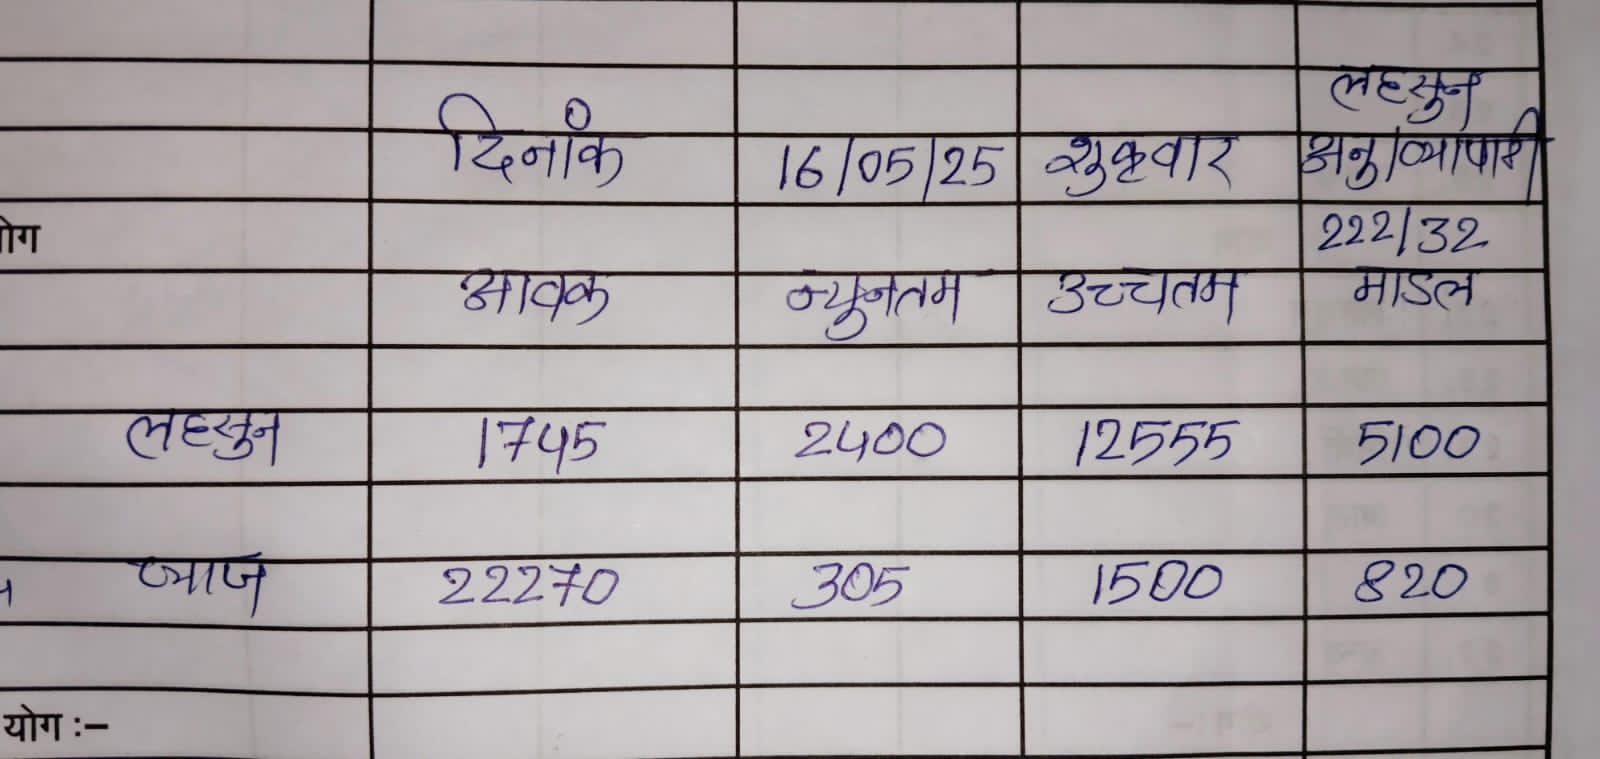 लहसुन
दिनांक 16/05/25 शुक्रवार अनु/व्यापारी
योग 222/32
आवक न्युनतम उच्चतम माडल
लहसुन 1745 2400 12555 5100
प्याज 22270 305 1500 820
योग :–